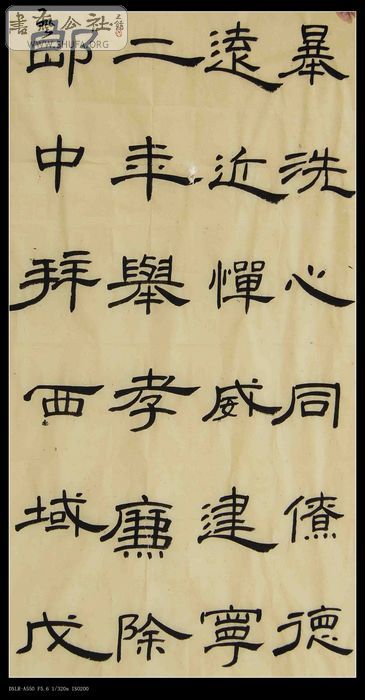 暴洗心同僚德
遠近憚威建寧
二年舉孝廉除
郎中拜西域戊
書藝公社
WWW.SHUFA.ORG
DSLR-A550 F5.6 1/320s ISO200